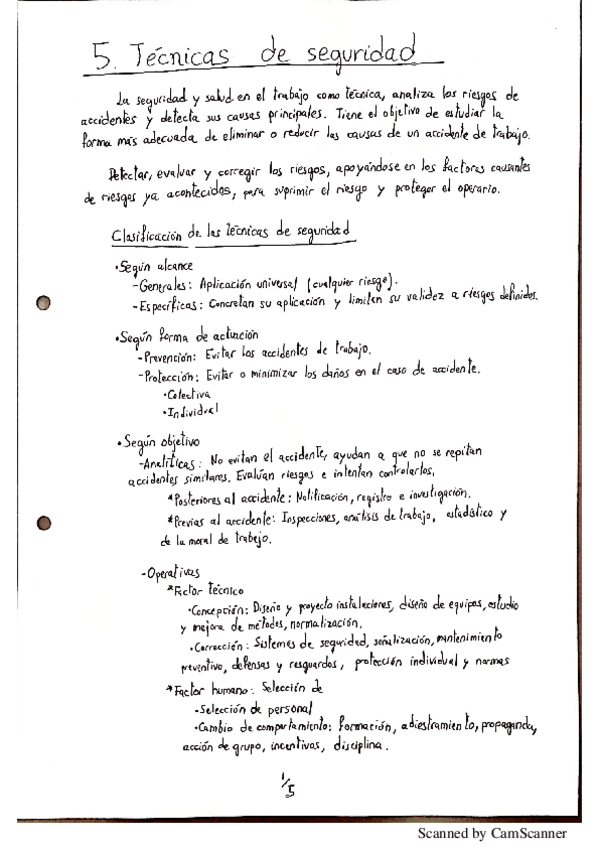 5. Técnicas de seguridad
La seguridad y salud en el trabajo como técnica, analiza los riesgos de
accidentes y detecta sus causas principales. Tiene el objetivo de estudiar la
forma más adecuada de eliminar o reducir las causas de un accidente de trabajo.
Detectar, evaluar y corregir los riesgos, apoyándose en los factores causantes
de riesgos ya acontecidos, para suprimir el riesgo y proteger el operario.
Clasificación de las técnicas de seguridad
•Según alcance
-Generales: Aplicación universal (cualquier riesgo).
-Específicas: Concretan su aplicación y limitan su validez a riesgos definidos.
•Según forma de actuación
-Prevención: Evitar los accidentes de trabajo.
-Protección: Evitar o minimizar los daños en el caso de accidente.
•Colectiva
•Individual
•Según objetivo
-Analíticas: No evitan el accidente, ayudan a que no se repitan
accidentes similares. Evalúan riesgos e intentan controlarlos.
*Posteriores al accidente: Notificación, registro e investigación.
*Previas al accidente: Inspecciones, análisis de trabajo, estadístico y
de la moral de trabajo.
-Operativas
*Factor técnico
•Concepción: Diseño y proyecto instalaciones, diseño de equipos, estudio
y mejora de métodos, normalización.
•Corrección: Sistemas de seguridad, señalización, mantenimiento
preventivo, defensas y resguardos, protección individual y normas
*Factor humano: Selección de
•Selección de personal
•Cambio de comportamiento: formación, adiestramiento, propaganda,
acción de grupo, incentivos, disciplina.
1/5
Scanned by CamScanner